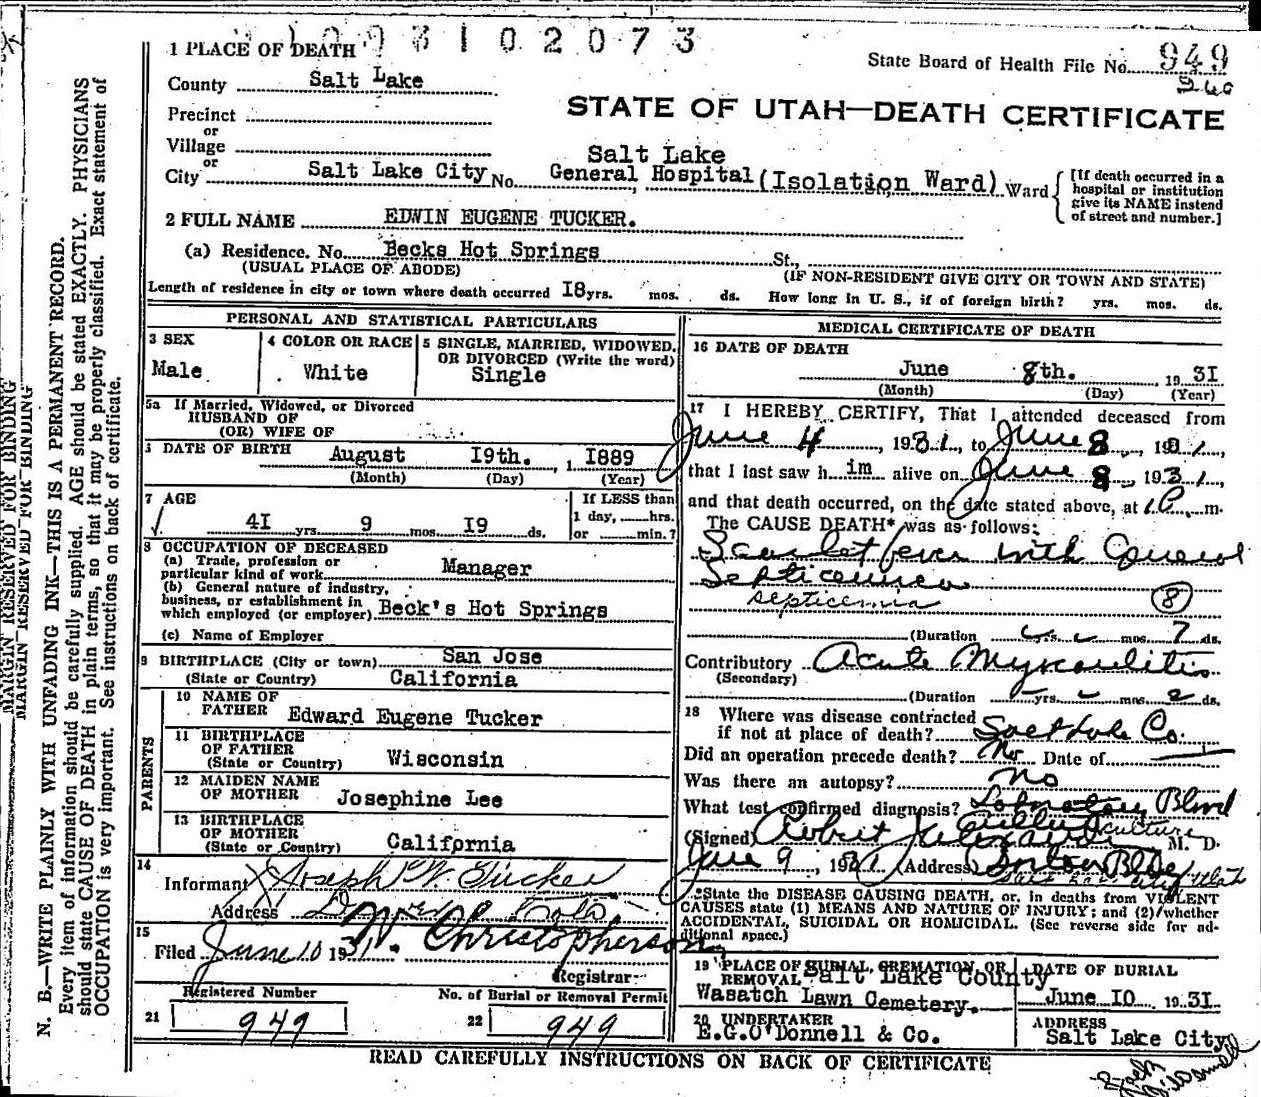 193102073
1 PLACE OF DEATH
State Board of Health File No. 949
County Salt Lake
STATE OF UTAH—DEATH CERTIFICATE
Precinct
or
Village
or
Salt Lake
City Salt Lake City No. General Hospital (Isolation, Ward) Ward
[If death occurred in a
hospital or institution
give its NAME instend
of street and number.]
2 FULL NAME EDWIN EUGENE TUCKER.
(a) Residence. No. Becks Hot Springs St.,
(USUAL PLACE OF ABODE) (IF NON-RESIDENT GIVE CITY OR TOWN AND STATE)
Length of residence in city or town where death occurred 18 yrs. mos. ds. How long in U. S., if of foreign birth? yrs. mos. ds.
PERSONAL AND STATISTICAL PARTICULARS
3 SEX
Male
4 COLOR OR RACE
White
5 SINGLE, MARRIED, WIDOWED,
OR DIVORCED (Write the word)
Single
5a If Married, Widowed, or Divorced
HUSBAND OF
(OR) WIFE OF
DATE OF BIRTH August 19th. , 1 1889
(Month) (Day) (Year)
7 AGE
41 yrs. 9 mos. 19 ds.
If LESS than
1 day, hrs.
or min.?
8 OCCUPATION OF DECEASED
(a) Trade, profession or
particular kind of work Manager
(b) General nature of industry,
business, or establishment in
which employed (or employer) Beck's Hot Springs
(c) Name of Employer
9 BIRTHPLACE (City or town) San Jose
(State or Country) California
PARENTS
10 NAME OF
FATHER Edward Eugene Tucker
11 BIRTHPLACE
OF FATHER
(State or Country) Wisconsin
12 MAIDEN NAME
OF MOTHER Josephine Lee
13 BIRTHPLACE
OF MOTHER
(State or Country) California
14
Informant Joseph W. Tucker
Address Denver Colo.
15
Filed June 10 1931. Christopherson
Registrar
Registered Number
21 949
No. of Burial or Removal Permit
22 949
MEDICAL CERTIFICATE OF DEATH
16 DATE OF DEATH
June 8th. , 1931
(Month) (Day) (Year)
17 I HEREBY CERTIFY, That I attended deceased from
June 4 , 1931, to June 8 , 1931,
that I last saw h im alive on June 8 , 1931,
and that death occurred, on the date stated above, at 1 P. m.
The CAUSE DEATH* was as follows:
Scarlet fever with General
Septicemia
septicemia 8
(Duration yrs. mos. 7 ds.
Contributory Acute Myocarditis
(Secondary)
(Duration yrs. mos. 2 ds.
18 Where was disease contracted
if not at place of death? Salt Lake Co.
Did an operation precede death? No Date of
Was there an autopsy? no
What test confirmed diagnosis? Laboratory Blood
culture
(Signed) Robert M. D.
June 9 , 1931 (Address)
Salt Lake City, Utah
*State the DISEASE CAUSING DEATH, or, in deaths from VIOLENT
CAUSES state (1) MEANS AND NATURE OF INJURY; and (2) whether
ACCIDENTAL, SUICIDAL OR HOMICIDAL. (See reverse side for ad-
ditional space.)
19 PLACE OF BURIAL, CREMATION, OR
REMOVAL Salt Lake County
Wasatch Lawn Cemetery.
DATE OF BURIAL
June 10 1931
20 UNDERTAKER
E.G.O'Donnell & Co.
ADDRESS
Salt Lake City
READ CAREFULLY INSTRUCTIONS ON BACK OF CERTIFICATE
MARGIN RESERVED FOR BINDING
MARGIN RESERVED FOR BINDING
N. B.—WRITE PLAINLY WITH UNFADING INK—THIS IS A PERMANENT RECORD.
Every item of information should be carefully supplied. AGE should be stated EXACTLY. PHYSICIANS
should state CAUSE OF DEATH in plain terms, so that it may be properly classified. Exact statement of
OCCUPATION is very important. See instructions on back of certificate.